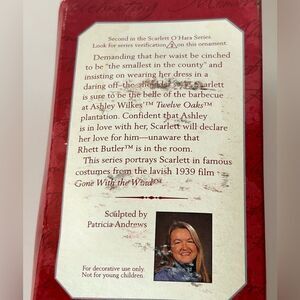 Second in the Scarlett O'Hara Series
Look for series verification on this ornament.
Demanding that her waist be cinched
to be "the smallest in the county" and
insisting on wearing her dress in a
daring off-the-shoulder style, Scarlett
is sure to be the belle of the barbecue
at Ashley Wilkes'™ Twelve Oaks™
plantation. Confident that Ashley
is in love with her, Scarlett will declare
her love for him—unaware that
Rhett Butler™ is in the room.
This series portrays Scarlett in famous
costumes from the lavish 1939 film
Gone With the Wind™.
Sculpted by
Patricia Andrews
For decorative use only.
Not for young children.